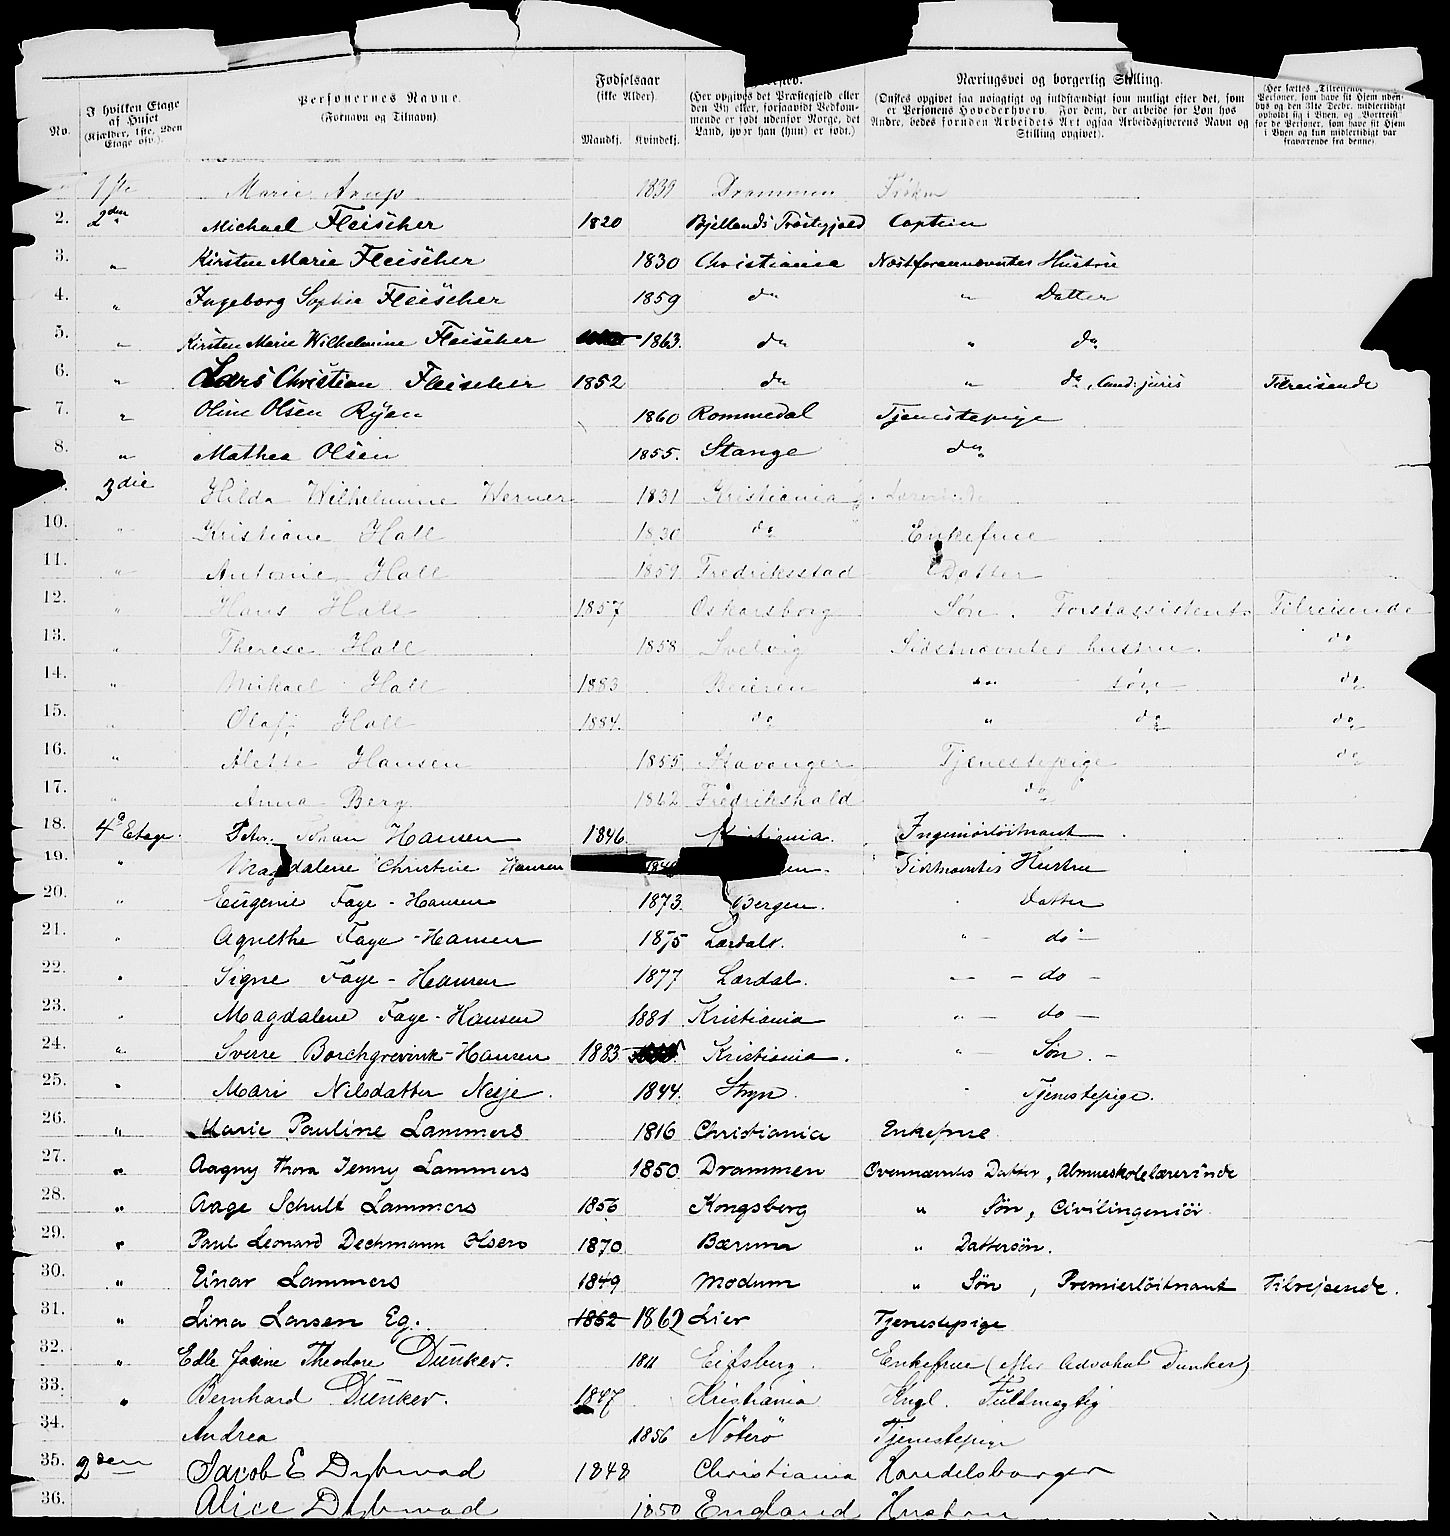 No.
I hvilken Etage af Huset (Kjælder, 1ste, 2den Etage osv.).
Personernes Navne. (Fornavn og Tilnavn)
Fødselsaar (ikke Alder). Mandkj. Kvindekj.
(Her opgives det Præstegjeld eller den By eller, forsaavidt Vedkommende er født udenfor Norge, det Land, hvor han (hun) er født.)
Næringsvei og borgerlig Stilling. (Ønskes opgivet saa nøiagtigt og fuldstændigt som muligt efter det, som er Personens Hovederhverv. For dem, der arbeide for Løn hos Andre, bedes foruden Arbeidets Art ogsaa Arbeidsgiverens Navn og Stilling opgivet).
(Her sættes „Tilreisende“ Personer, som have sit Hjem udenbys og den 31te Decbr. midlertidigt opholdt sig i Byen, og „Bortreist“ for de Personer, som have sit Hjem i Byen og kun midlertidigt var fraværende fra denne).
1ste Marie Arup 1839 Drammen Frøken
2. 2den Michael Fleischer 1820 Bjellands Præstegjeld Captein
3. " Kirsten Marie Fleischer 1830 Christiania Næstforannævntes Hustru
4. " Ingeborg Sophie Fleischer 1859 do " Datter
5. " Kirsten Marie Wilhelmine Fleischer 1863. do " do
6. " Lars Christian Fleischer 1852 do " do, Cand: juris Tilreisende
7. " Oline Olsen Ryen 1860 Rommedal Tjenestepige
8. " Mathea Olsen 1855. Stange do
3die Hilda Wilhelmine Werner 1831 Kristiania
10. " Kristiane Hall 1830 do Enkefrue
11. " Antonie Hall 1859 Fredriksstad Datter
12. " Hans Hall 1857 Oskarsborg Søn. Forstassistent Tilreisende
13. " Therese Hall 1858 Svelvig Sidstnævntes hustru. do
14. " Mikael Hall 1883 Beieren " søn do
15. " Olaf Hall 1884. do " do do
16. " Alette Hansen 1855 Stavanger Tjenestepige do
17. " Anna Berg 1862 Fredrikshald do
18. 4de Etage. Peter Johan Hansen 1846 Kristiania. Ingeniørløitnant
19. " Magdalene Christine Hansen Sidstnævntes Hustru
20. " Eugenie Faye-Hansen 1873. Bergen. Datter
21. " Agnethe Faye-Hansen 1875 Lærdal. " do
22. " Signe Faye-Hansen 1877 Lærdal. — do —
23. " Magdalene Faye-Hansen 1881 Kristiania " — do —
24. " Sverre Borchgrevink-Hansen 1883 Kristiania. " — Søn. —
25. " Mari Nilsdatter Nesje. 1844. Stryn. " Tjenestepige.
26. " Marie Pauline Lammers 1816 Christiania Enkefrue
27. " Aagny Thora Jenny Lammers 1850. Drammen Ovennævntes Datter, Almueskolelærerinde
28. " Aage Schult Lammers 1856 Kongsberg " Søn, Civilingeniör
29. " Paul Leonard Dechmann Olsen 1870 Bærum " Dattersøn.
30. " Einar Lammers 1849 Modum " Søn, Premierløitnant Tilrejsende.
31. " Lina Larsen Eg. 1852 1862 Lier Tjenestepige
32. " Edle Jasine Theodore Dunker. 1811 Eidsberg. Enkefrue (efter Advokat Dunker)
33. " Bernhard Dunker. 1847 Kristiania Kngl. Fuldmægtig
34. Andrea 1856 Nöterö Tjenestepige
35. 2den Jacob E Dybwad 1848 Christiania Handelsborger
36. Alice Dybwad 1850 England Hustru